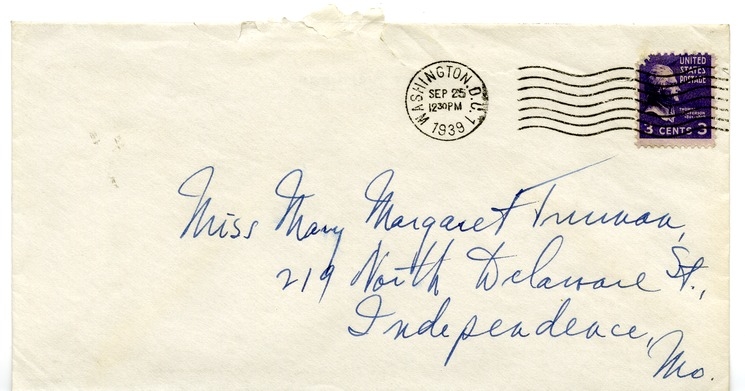 WASHINGTON, D.C. 1
SEP 25
12 30 PM
1939
UNITED
STATES
POSTAGE
3 CENTS 3
Miss Mary Margaret Truman,
219 North Delaware St.,
Independence,
Mo.